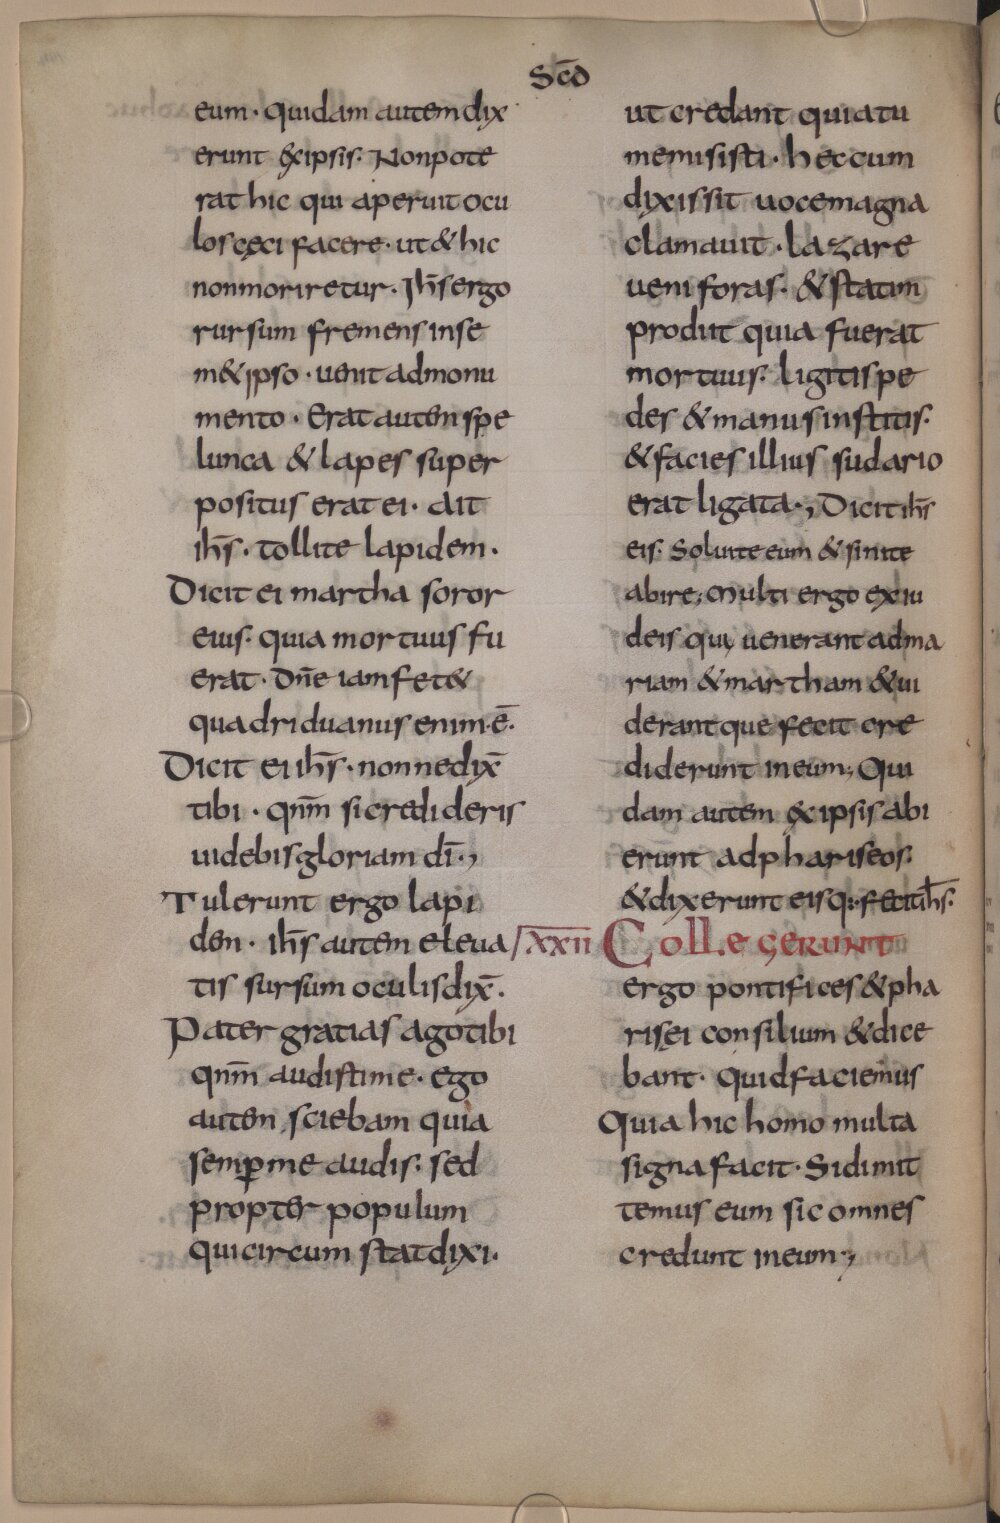 Sc̄d
eum · quidam autem dix
erunt ex ipsis · Non pote
rat hic qui aperuit ocu
los cęci facere · ut & hic
non moriretur · Ih̄s ergo
rursum fremens in se
m&ipso · uenit ad monu
mento · Erat autem spe
lunca & lapes super
positus erat ei · ait
ih̄s · tollite lapidem ·
Dicit ei martha soror
eius · quia mortuus fu
erat · Dn̄e iam fet&
quadriduanus enim · ē ·
Dicit ei ih̄s · nonne dix̄
tibi · qn̄m si credideris
uidebis gloriam dī ·,
Tulerunt ergo lapi
dem · ih̄s autem eleua
tis sursum oculis dix̄ ·
Pater gratias ago tibi
qn̄m audisti me · ego
autem sciebam quia
semꝑ me audis : sed
propter populum
qui circum stat dixi ·
ut credant quia tu
me misisti · hec cum
dixissit uoce magna
clamauit · lazare
ueni foras · & statim
prodiit quia fuerat
mortuus · ligitis pe
des & manus institis ·
& facies illius sudario
erat ligata ·, Dicit ih̄s
eis · Soluite eum & sinite
abire ; Multi ergo ex iu
deis qui uenerant ad ma
riam & martham & ui
derant que fecit cre
diderunt in eum ; Qui
dam autem ex ipsis abi
erunt ad phariseos ·
& dixerunt eis q: fecit ih̄s ·
XXII Collegerunt
ergo pontifices & pha
risęi consilium & dice
bant · Quid faciemus
Quia hic homo multa
signa facit · Si dimit
temus eum sic omnes
credunt in eum ;